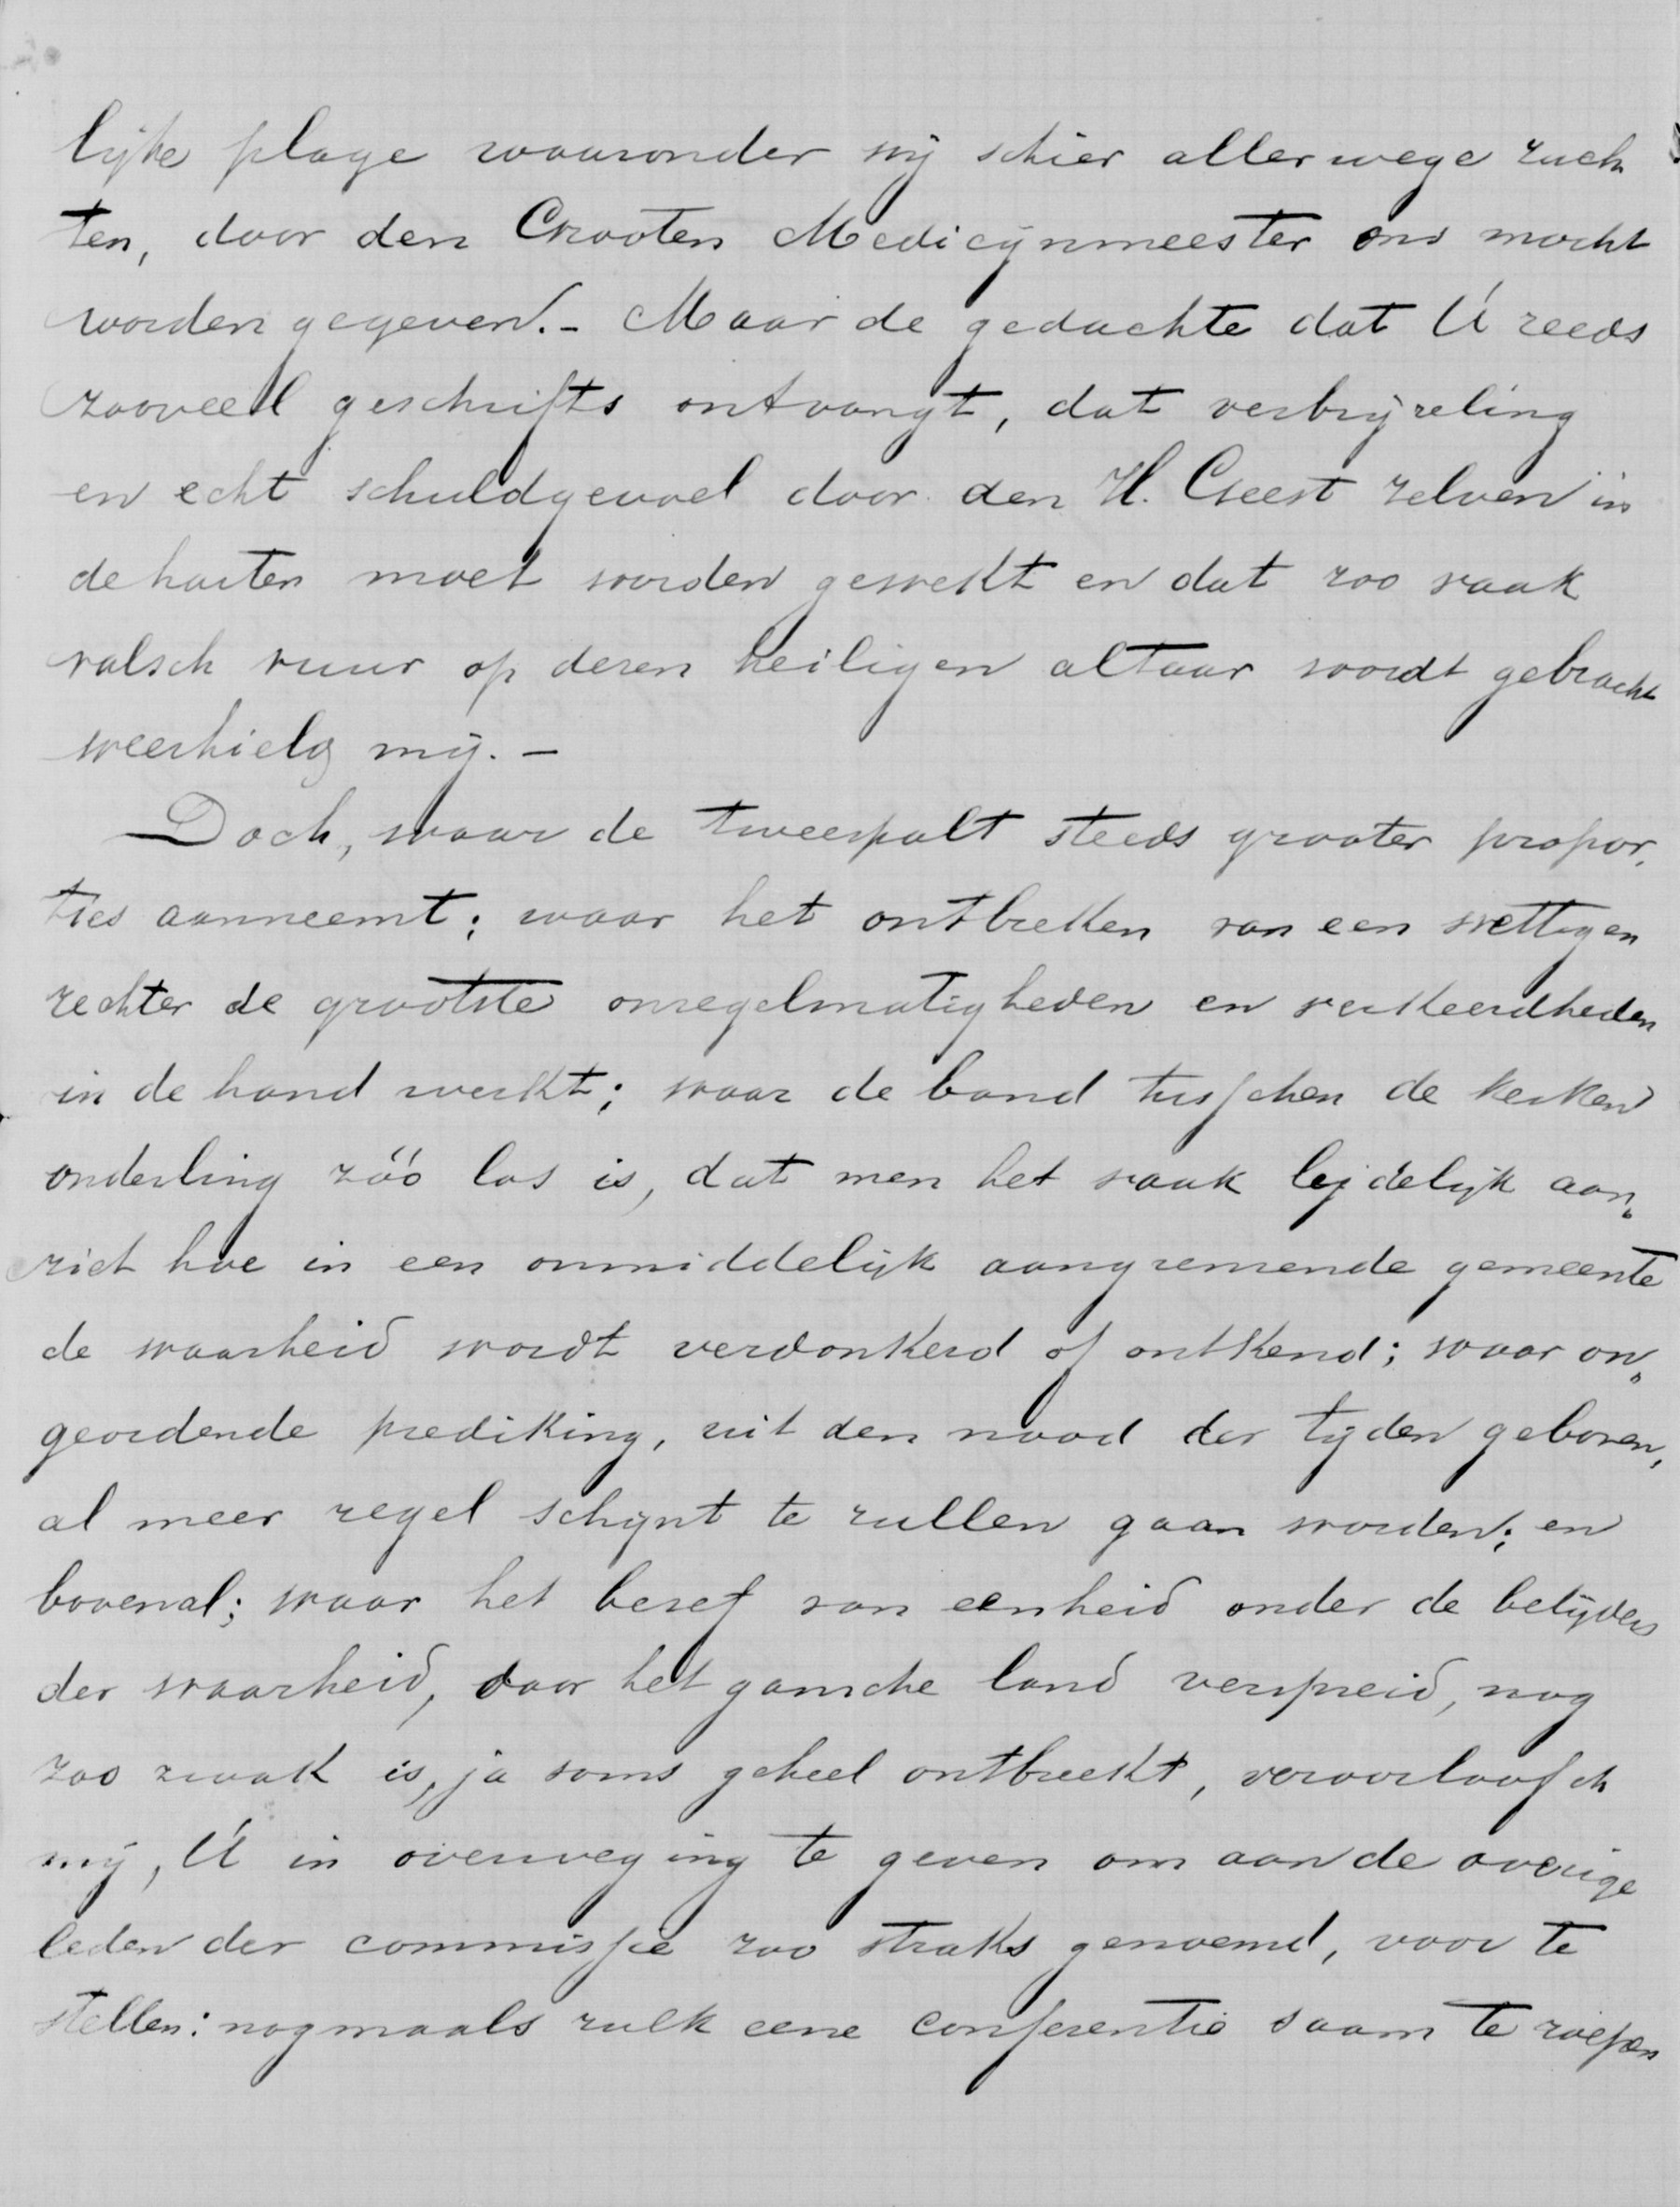 lijke plage waaronder wij schier allerwege zuch
ten, door den Grooten Medicijnmeester ons mocht
worden gegeven. - Maar de gedachte dat Ú reeds
zooveel geschrifts ontvangt, dat verbrijzeling
en echt schuldgevoel door den H. Geest zelven in
de harten moet worden gewekt en dat zoo vaak
valsch vuur op dezen heiligen altaar wordt gebracht
weerhield mij. -
Doch, waar de tweespalt steeds grooter propor„
ties aanneemt; waar het ontbreken van een wettigen
rechter de grootste onregelmatigheden en verkeerdheden
in de hand werkt; waar de band tusschen de kerken
onderling zóó los is, dat men het vaak lijdelijk aan„
ziet hoe in een onmiddelijk aangrenzende gemeente
de waarheid wordt verdonkerd of ontkend; waar on„
geordende prediking, uit den nood der tijden geboren,
al meer regel schijnt te zullen gaan worden; en
bovenal; waar het besef van eenheid onder de belijders
der waarheid, door het gansche land verspreid, nog
zoo zwak is, ja soms geheel ontbreekt, veroorloof ik
mij, Ú in overweging te geven om aan de overige
leden der commissie zoo straks genoemd, voor te
stellen: nogmaals zulk eene conferentie saam te roepen